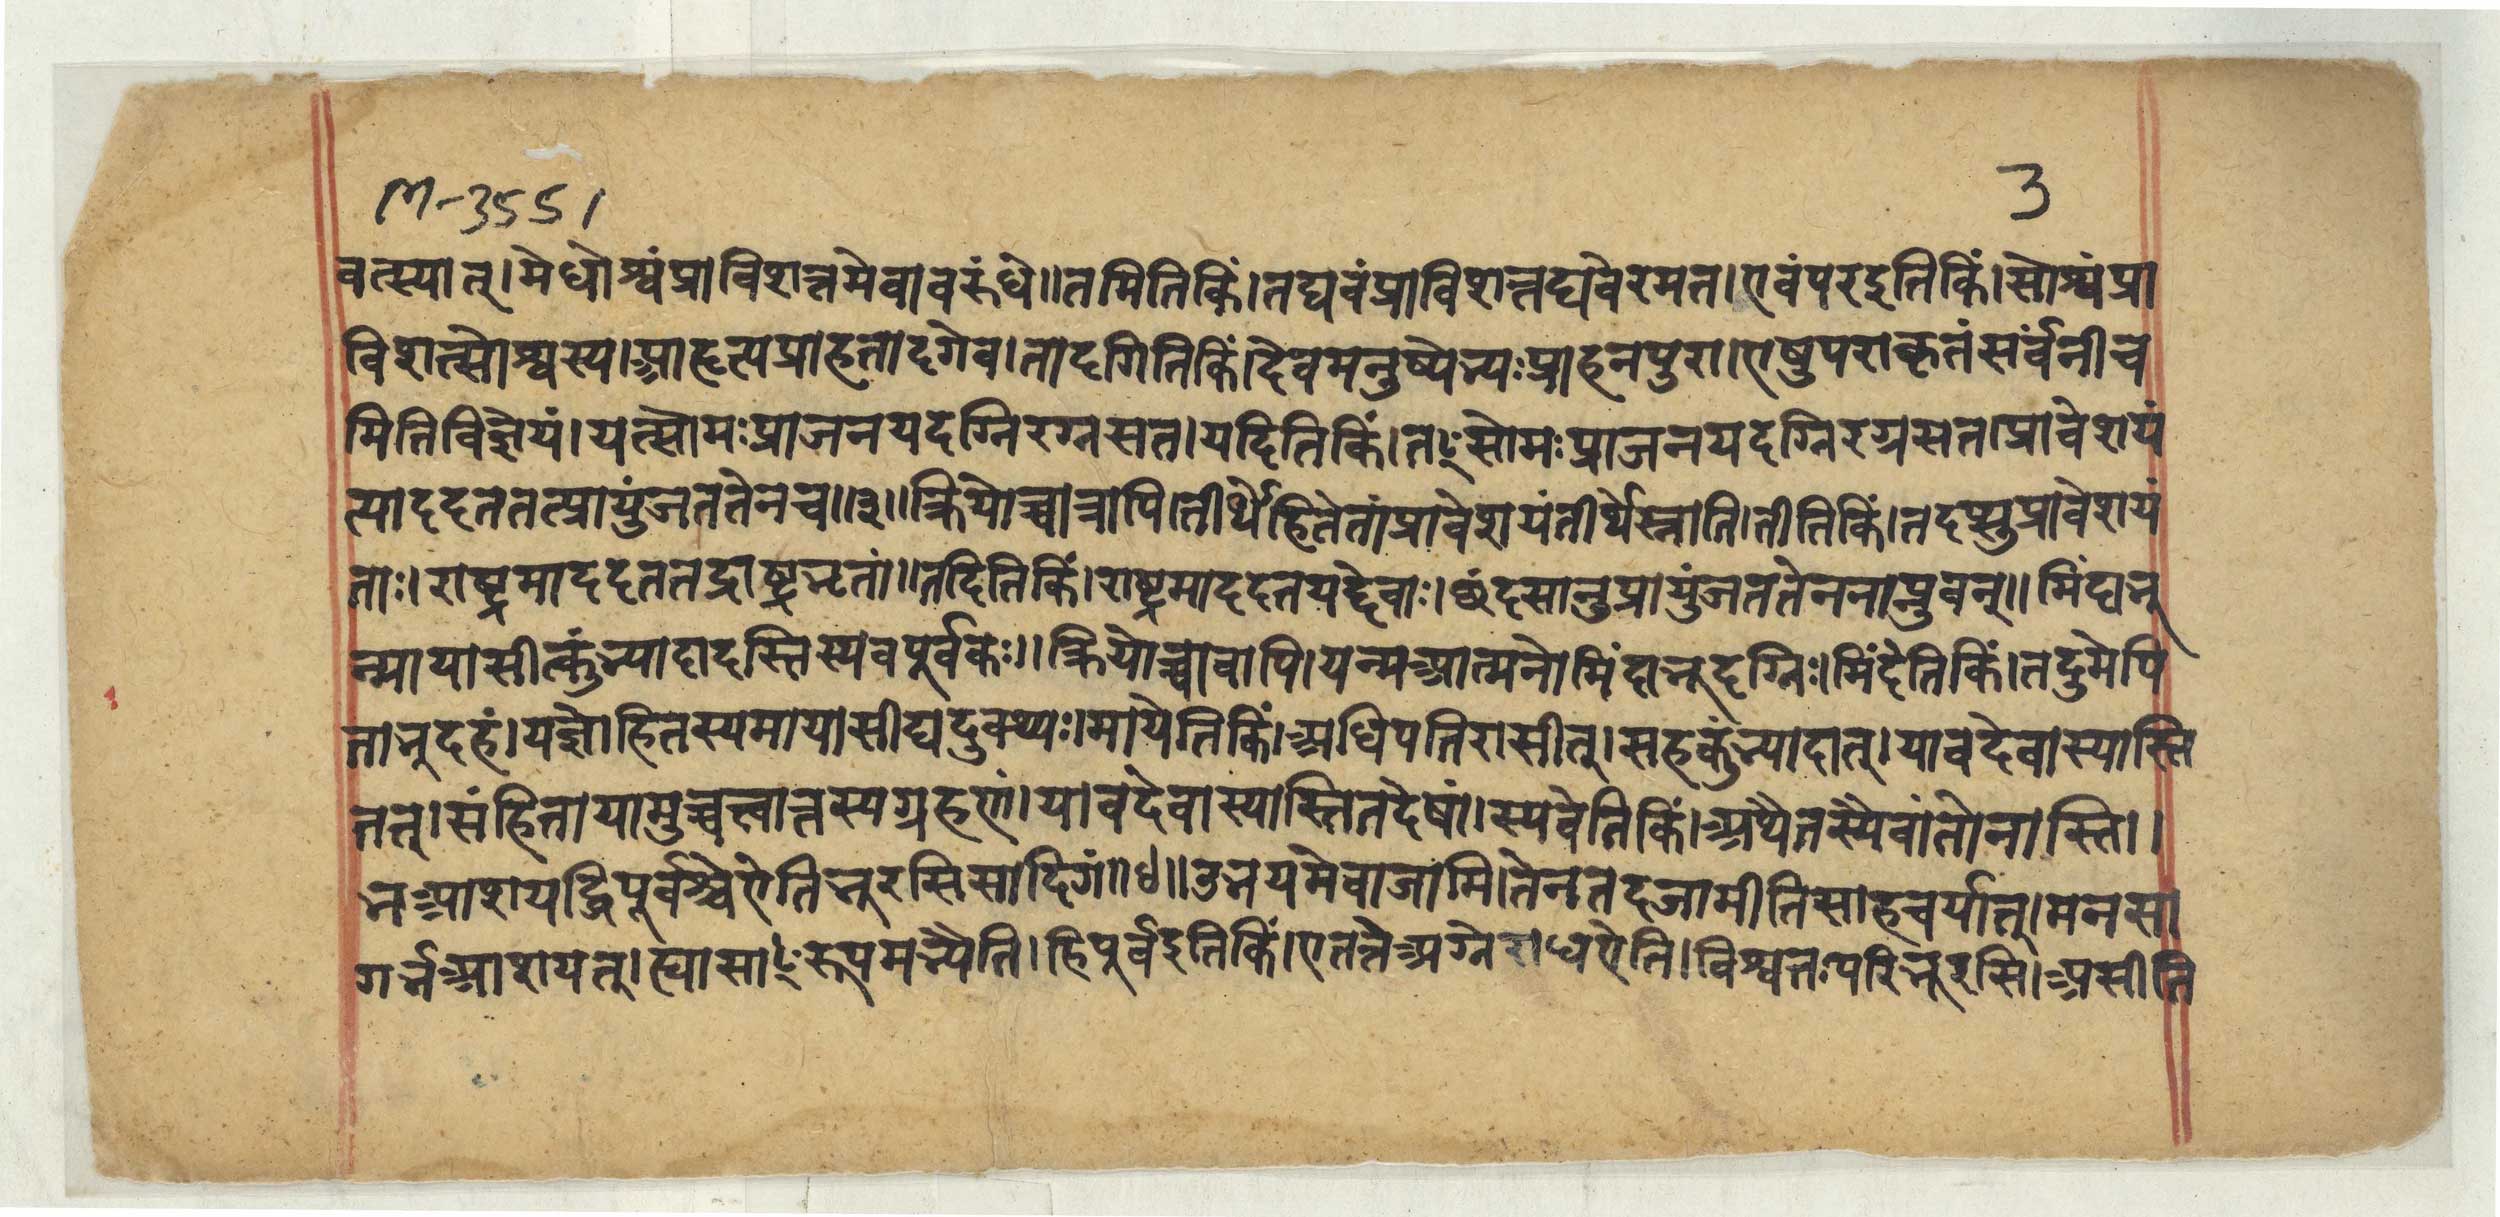 M-3551
3
वत्स्यात्।मेधोश्वंप्राविशत्तमेवावरुंधे॥तमितिकिं।तद्यवंप्राविशत्तद्यवेरमत।एवंपरइतिकिं।सोश्वंप्रा
विशत्सोश्वस्य।आहृत्यप्राहतादगेव।तादगितिकिं।देवमनुष्येभ्यःप्राहनपुरा।एषुपराकृतंसर्वनीच
मितिविज्ञेयं।यत्सोमःप्राजनयदग्निरग्नसत।यदितिकिं।तꣳसोमःप्राजनयदग्निरग्रसत।प्रावेशयं
त्याददततत्प्रायुंजततेनच॥३॥क्रियोच्चात्रापि।तीर्थेहितेतांप्रावेशयंतीर्थेस्नाति।तीतिकिं।तदप्सुप्रावेशयं
ताः।राष्ट्रमाददततद्राष्ट्रभृतां॥तदितिकिं।राष्ट्रमाददतयद्देवाः।छंदसानुप्रायुंजततेननाप्नुवन्॥मिंदाभू
न्मायासीत्कुंभ्यादादस्तिस्यवपूर्वकः॥क्रियोच्चावापि।यन्मआत्मनोमिंदाभूदग्निः।मिंदेतिकिं।तदुमेपि
ताभूदहं।यज्ञोहितस्यमायासीद्यदुक्थ्यः।मायेतिकिं।अधिपतिरासीत्।सहकुंभ्यादात्।यावदेवास्यास्ति
तत्।संहितायामुच्चत्वात्तस्यग्रहणं।यावदेवास्यास्तितदेषां।स्यवेतिकिं।अथैतस्यैवांतोनास्ति।।
नआशयद्धिपूर्वश्चैऐतिभूरसिसादिगं॥४॥उभयमेवाजामि।तेनतदजामीतिसाहचर्यात्।मनसा
गर्भआशयत्।त्घासाꣳरूपमभ्यैति।हिपूर्वइतिकिं।एतत्तेअग्नेराधऐति।विश्वतःपरिभूरसि।असीति